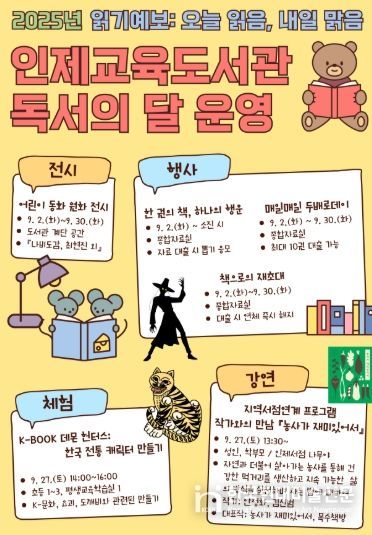 2025년 읽기예보: 오늘 읽음, 내일 맑음
인제교육도서관
독서의 달 운영
전시
어린이 동화 원화 전시
9. 2.(화)~9. 30.(화)
도서관 계단 공간
『나비도감, 최현진 외』
행사
한 권의 책, 하나의 행운
9. 2.(화) ~ 소진 시
종합자료실
자료 대출 시 뽑기 응모
매일매일 두배로데이
9. 2.(화) ~ 9. 30.(화)
종합자료실
최대 10권 대출 가능
책으로의 재초대
9. 2.(화)~9. 30.(화)
종합자료실
대출 시 연체 즉시 해지
체험
K-BOOK 데몬 헌터스:
한국 전통 캐릭터 만들기
9. 27.(토) 14:00~16:00
초등 1~3, 평생교육학습실 1
K-문화, 효과, 도깨비와 관련된 만들기
강연
지역서점연계 프로그램
작가와의 만남 『농사가 재미있어서』
9. 27.(토) 13:30~
성인, 학부모 / 인제서점 나무이
자연과 더불어 살아가는 농사를 통해 건
강한 먹거리를 생산하고 지속 가능한 삶
대표작: 농사가 재미있어서, 목수책방